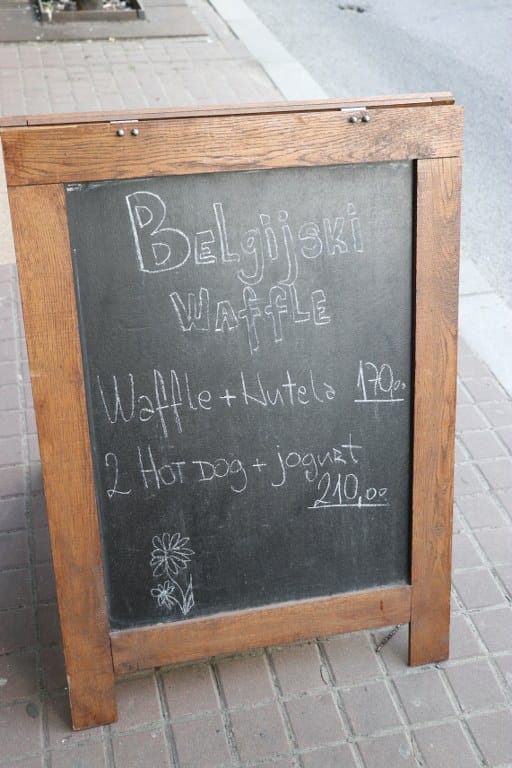 BELgijSKi
WAffLE
Waffle + Nutela 170,00
2 HOT DOG + jogurt
210,00